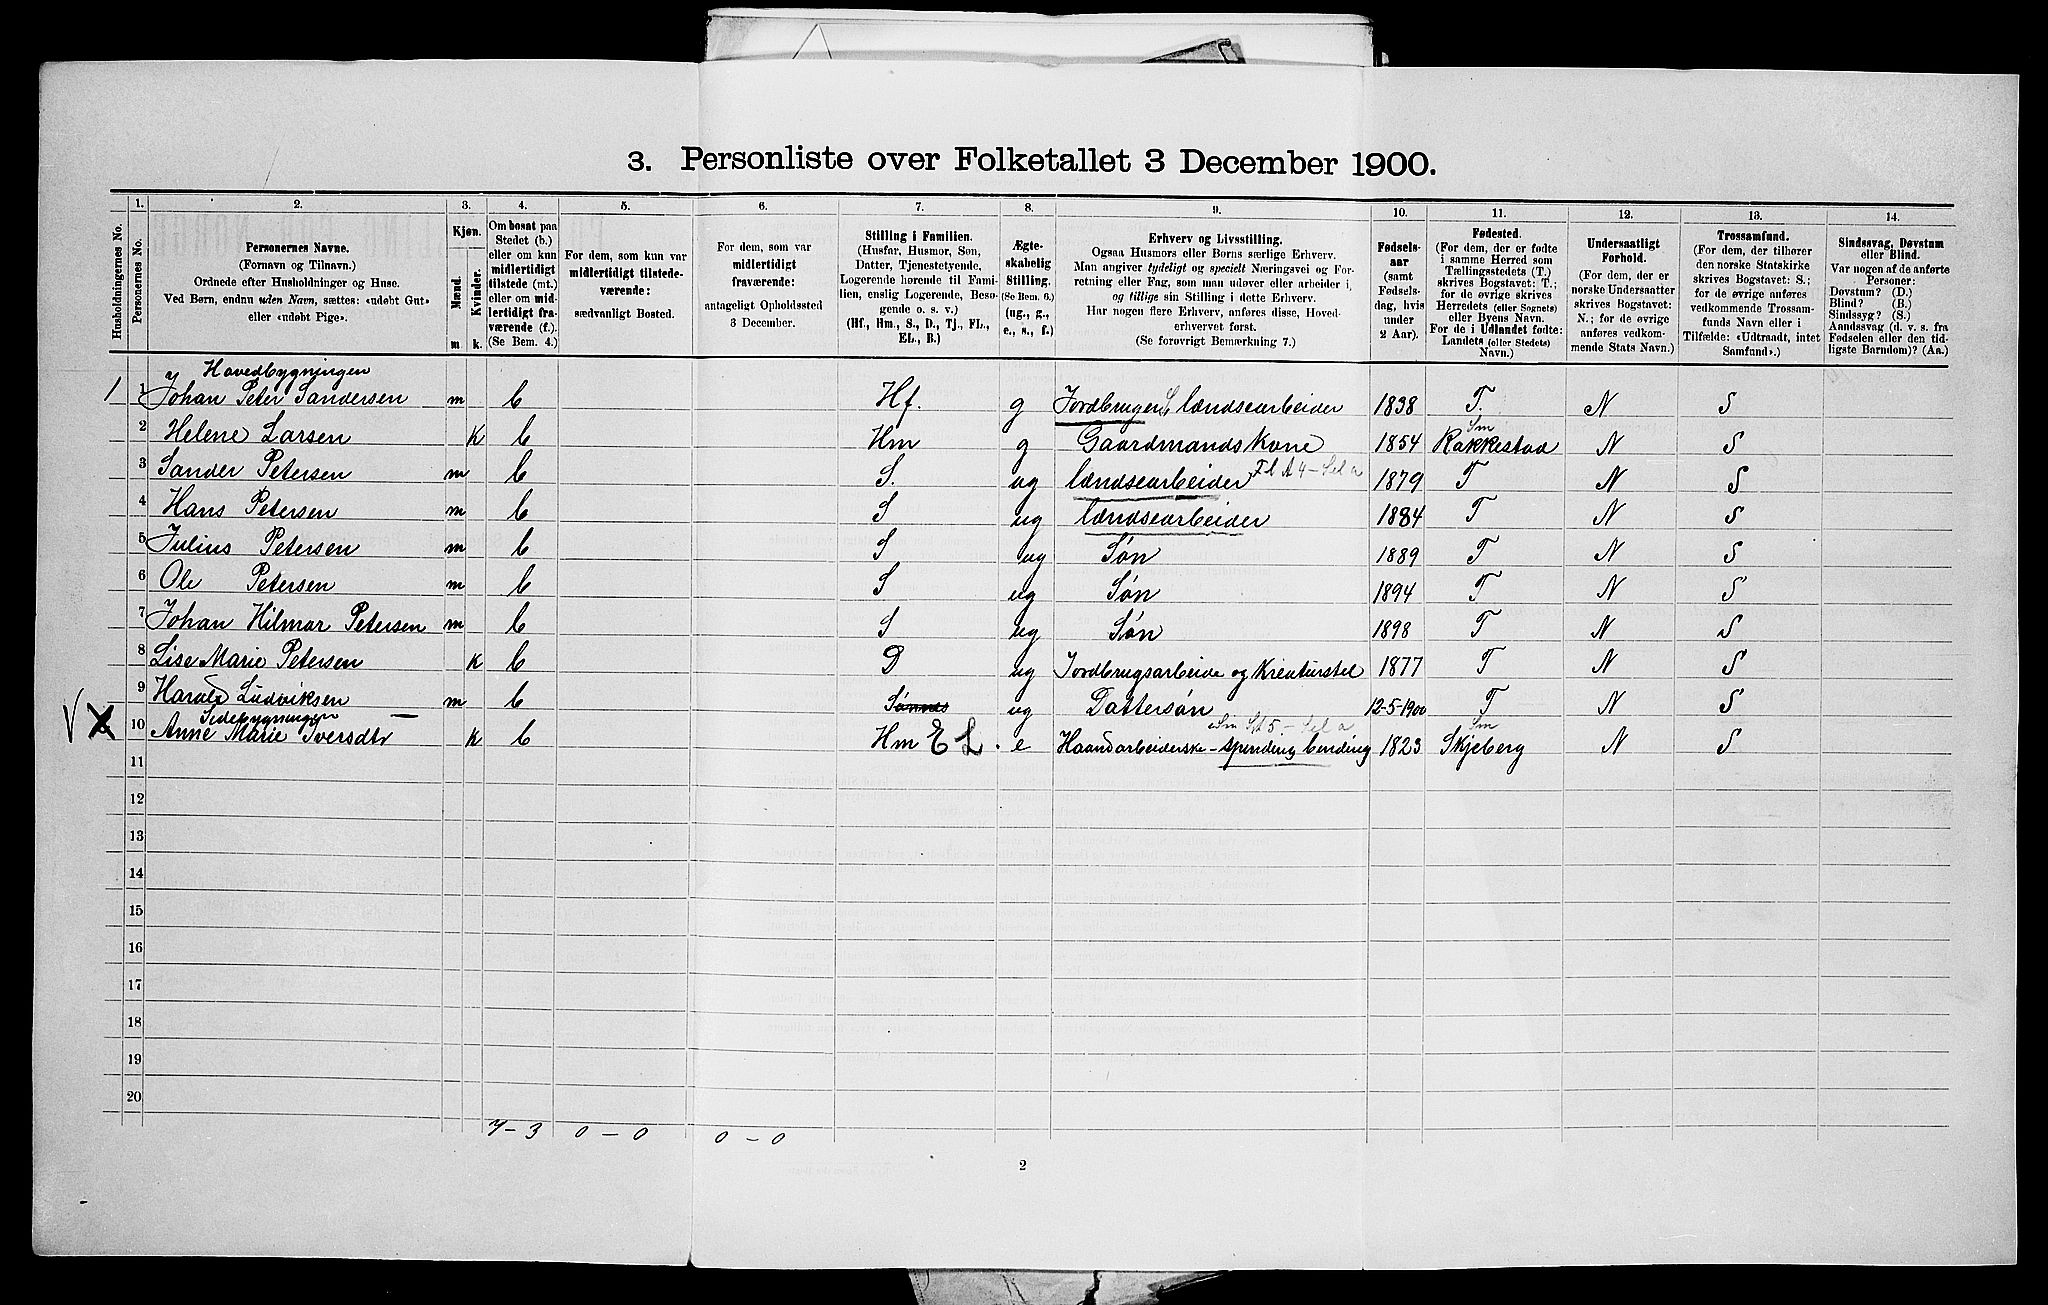 3. Personliste over Folketallet 3 December 1900.
Husholdningernes No.
1.
Personernes No.
2.
Personernes Navne.
(Fornavn og Tilnavn.)
Ordnede efter Husholdninger og Huse.
Ved Børn, endnu uden Navn, sættes: «udøbt Gut»
eller «udøbt Pige».
3.
Kjøn.
Mænd.
Kvinder.
m
k.
4.
Om bosat paa
Stedet (b.)
eller om kun
midlertidigt
tilstede (mt.)
eller om mid-
lertidigt fra-
værende (f.).
(Se Bem. 4.)
5.
For dem, som kun var
midlertidigt tilstede-
værende:
sædvanligt Bosted.
6.
For dem, som var
midlertidigt
fraværende:
antageligt Opholdssted
3 December.
7.
Stilling i Familien.
(Husfar, Husmor, Søn,
Datter, Tjenestetyende,
Logerende hørende til Fami-
lien, enslig Logerende, Besø-
gende o. s. v.)
(Hf., Hm., S., D., Tj., FL.,
EL., B.)
8.
Ægte-
skabelig
Stilling.
(Se Bem. 6.)
(ug., g.,
e., s., f.)
9.
Erhverv og Livsstilling.
Ogsaa Husmors eller Børns særlige Erhverv.
Man angiver tydeligt og specielt Næringsvei og For-
retning eller Fag, som man udøver eller arbeider i,
og tillige sin Stilling i dette Erhverv.
Har nogen flere Erhverv, anføres disse, Hoved-
erhvervet først.
(Se forøvrigt Bemærkning 7.)
10.
Fødsels-
aar
(samt
Fødsels-
dag, hvis
under
2 Aar).
11.
Fødested.
(For dem, der er fødte
i samme Herred som
Tællingsstedets (T.)
skrives Bogstavet: T.;
for de øvrige skrives
Herredets (eller Sognets)
eller Byens Navn.
For de i Udlandet fødte:
Landets (eller Stedets)
Navn.)
12.
Undersaatligt
Forhold.
(For dem, der er
norske Undersaatter
skrives Bogstavet:
N.; for de øvrige
anføres vedkom-
mende Stats Navn.)
13.
Trossamfund.
(For dem, der tilhører
den norske Statskirke
skrives Bogstavet: S.;
for de øvrige anføres
vedkommende Trossam-
funds Navn eller i
Tilfælde: «Udtraadt, intet
Samfund».)
14.
Sindssvag, Døvstum
eller Blind.
Var nogen af de anførte
Personer:
Døvstum? (D.)
Blind? (B.)
Sindssyg? (S.)
Aandssvag (d. v. s. fra
Fødselen eller den tid-
ligste Barndom)? (Aa.)
Hovedbygningen
1 1 Johan Peter Sandersen m b Hf. g Jordbruger S lændsearbeider 1838 T. N S
Sm
2 Helene Larsen k b Hm g Gaardmandskone 1854 Rakkestad N S
3 Sander Petersen m b S. ug lændsearbeider Fl A4 - Sel a 1879 T N S
4 Hans Petersen m b S ug lændsearbeider 1884 T N S
5 Julius Petersen m b S ug Søn 1889 T N S
6 Ole Petersen m b S ug Søn 1894 T N S
7 Johan Hilmar Petersen m b S ug Søn 1898 T N S
8 Lise Marie Petersen k b D ug Jordbrugsarbeide og Kreaturstel 1877 T N S
9 Harald Ludviksen m b ug Dattersøn 12-5-1900 T N S
Sidebygningen Sm
10 Anne Marie Iversdtr k b Hm E L. e Haandarbeiderske - spinding binding 1823 Skjeberg N S
11
12
13
14
15
16
17
18
19
20
7 - 3 0 - 0 0 - 0
2